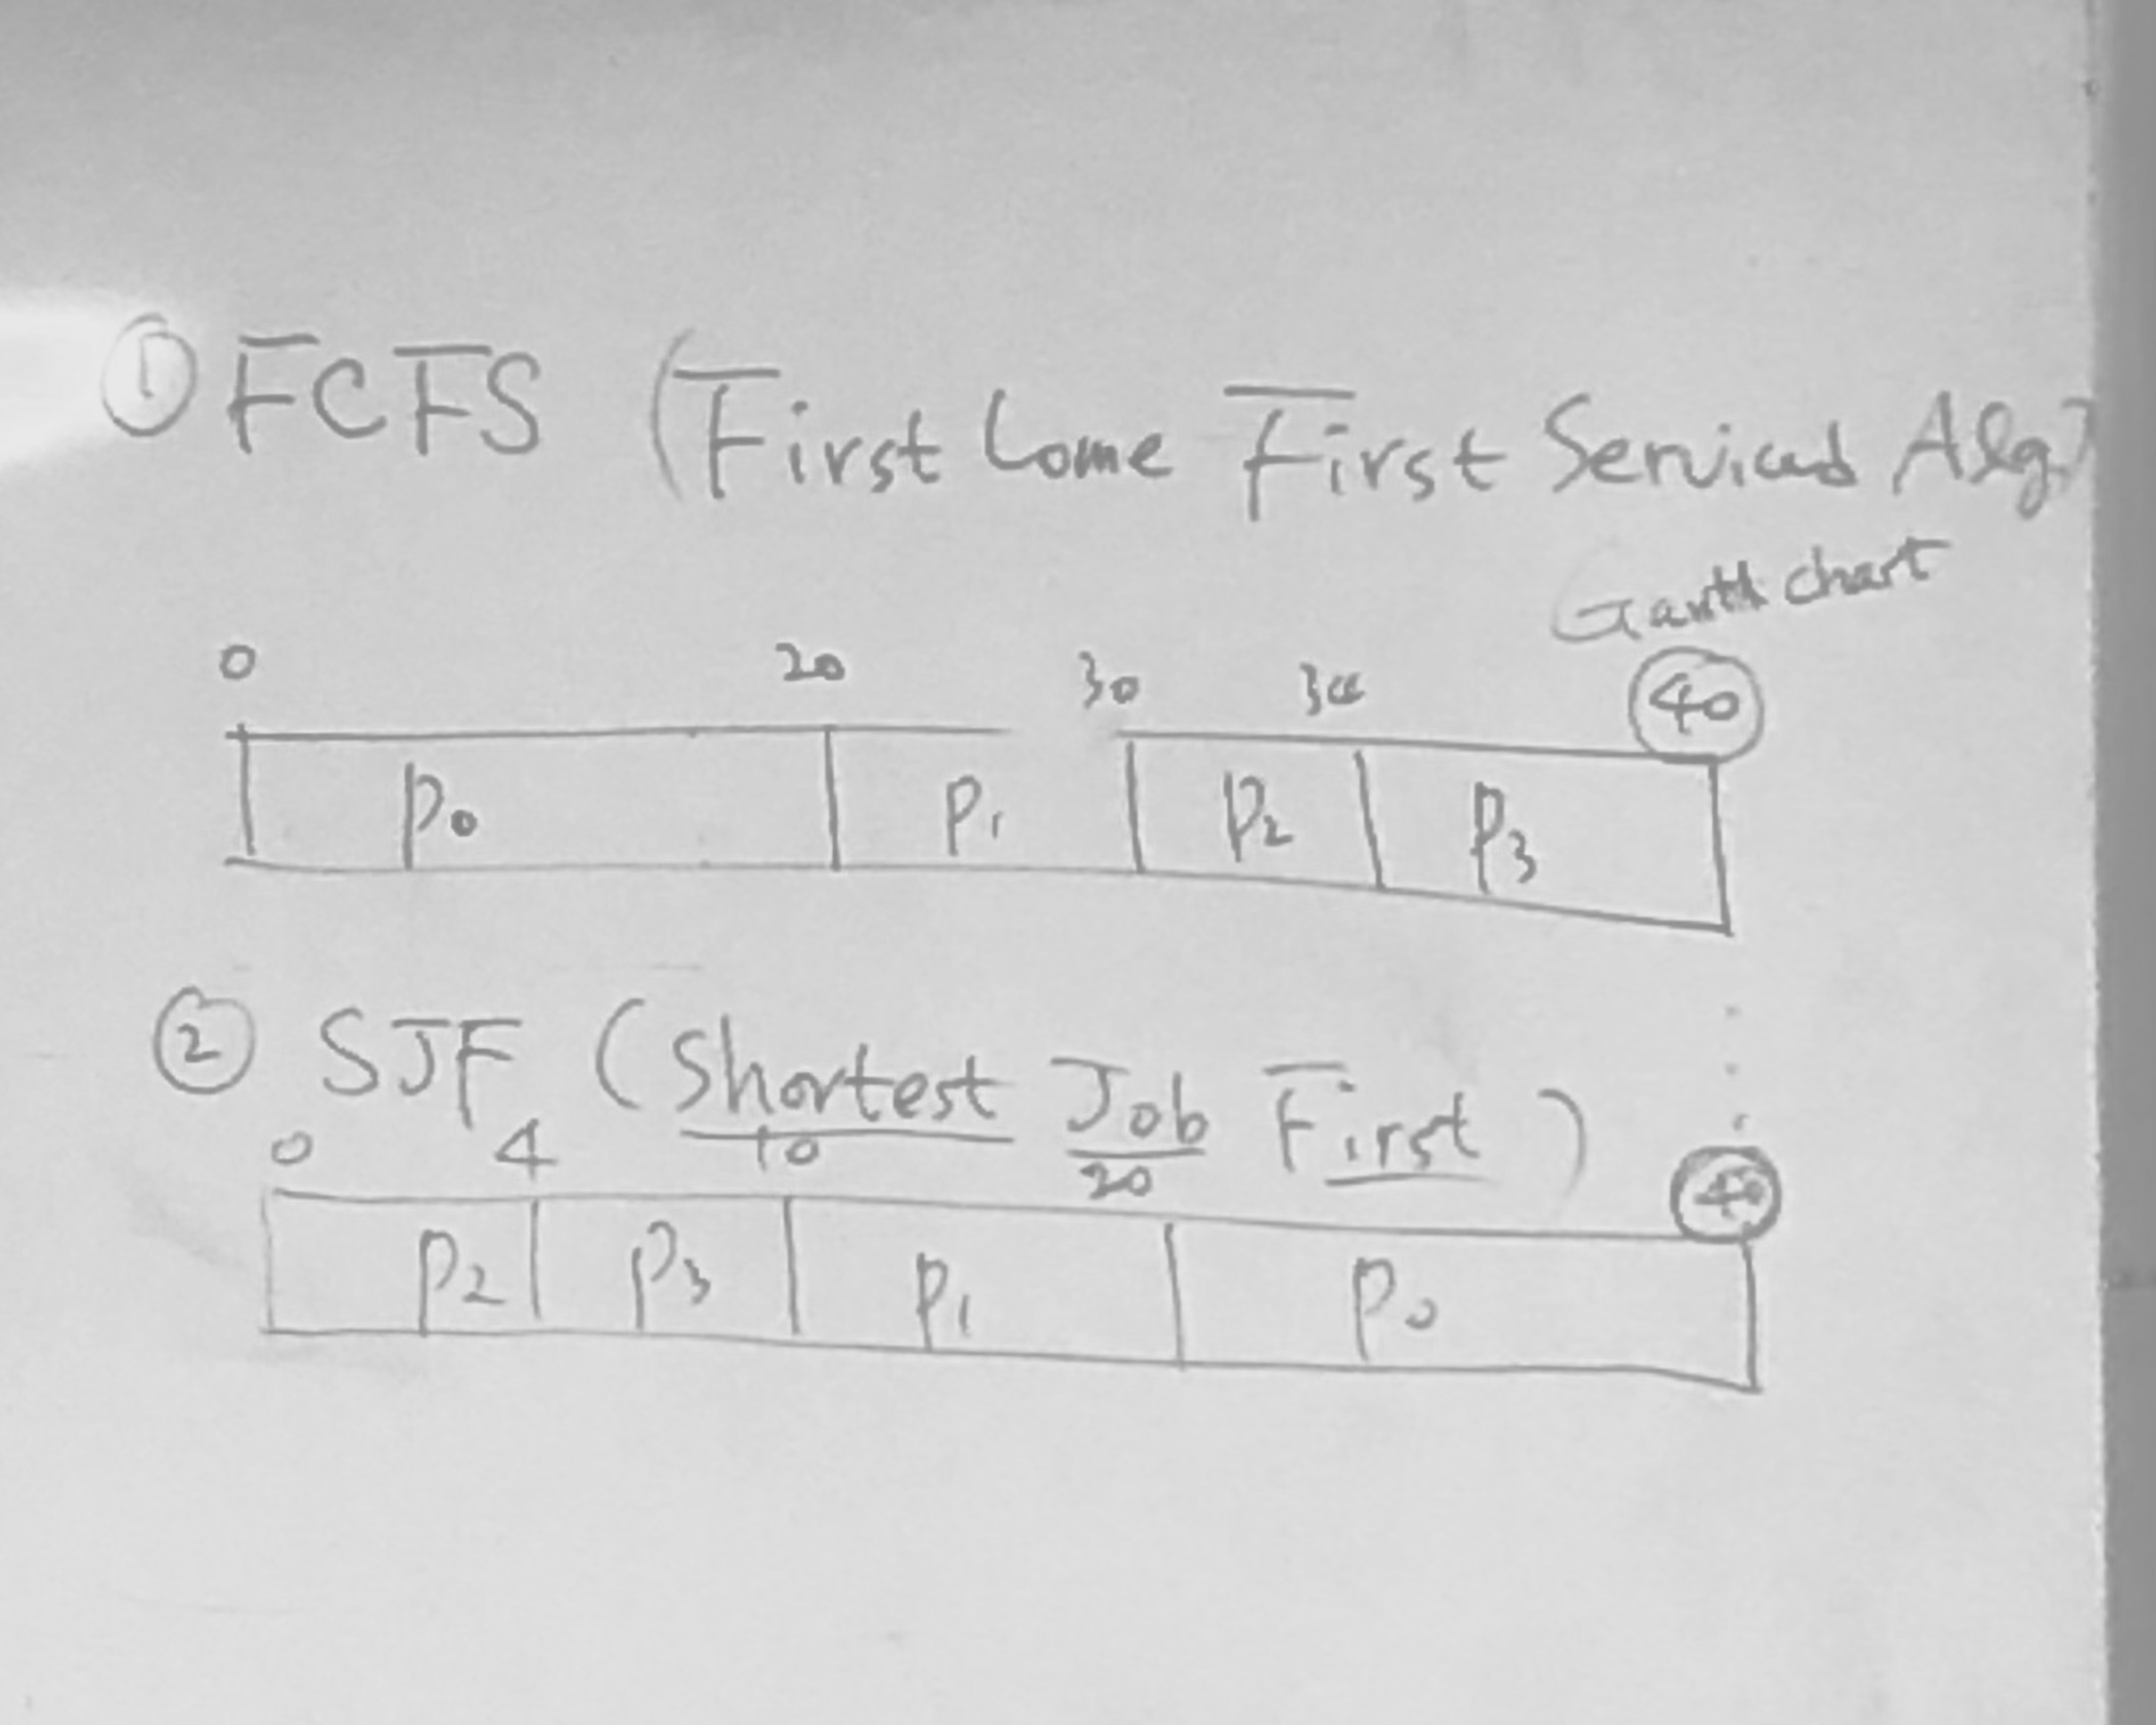 ① FCFS (First Come First Serviced Alg)
Gantt chart
0 20 30 34 40
P0 P1 P2 P3
② SJF (Shortest Job First)
0 4 10 20 40
P2 P3 P1 P0